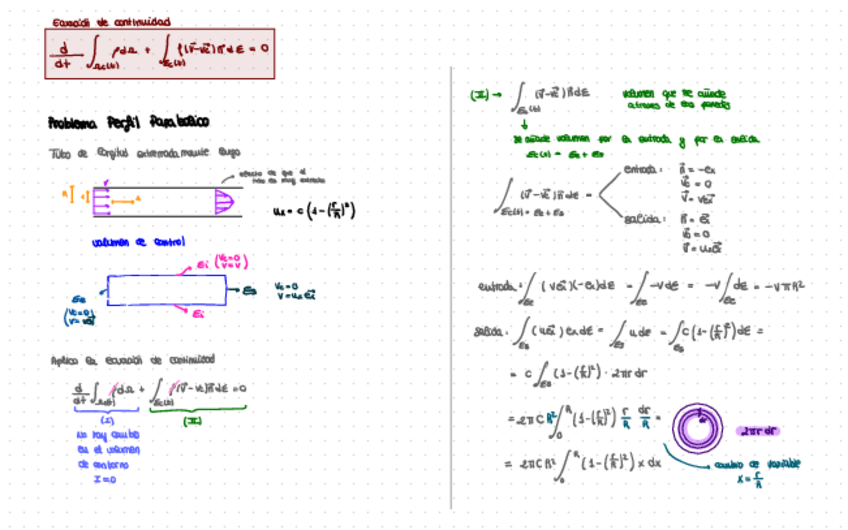 Ecuación de continuidad
d/dt ∫Ωc(t) ρdΩ + ∫Σc(t) ρ(v⃗-v⃗c)n⃗dΣ = 0
Problema Perfil Parabólico
Tubo de longitud extremadamente largo
efecto de que el
tubo es muy
R
r
v
x
ux = c (1-(r/R)²)
volumen de control
Σi (Vc=0
V=V)
Σe
(Vc=0)
(V=vex)
Σs
Vc=0
V=ux ex
Σi
Aplico la ecuación de continuidad
d/dt ∫Ωc(t) ρdΩ + ∫Σc(t) ρ(v⃗-vc)n⃗dΣ = 0
(I)
(II)
no hay cambio
en el volumen
de contorno
I=0
(II) → ∫Σc(t) (v⃗-v⃗c)n⃗dΣ
volumen que se añade
a traves de esa pared
se añade volumen por la entrada y por la salida
Σc(t) = Σe + Σs
∫Σc(t) = Σe + Σs (v⃗-v⃗c)n⃗dΣ =
entrada:
n⃗ = -ex
v⃗c = 0
v⃗ = vex
salida:
n⃗ = ex
v⃗c = 0
v⃗ = uxex
entrada: ∫Σe (vex)(-ex)dΣ = ∫Σe -vdΣ = -v∫Σe dΣ = -vπR²
salida: ∫Σs (uex)exdΣ = ∫Σs udΣ = ∫Σs c(1-(r/R)²)dΣ =
= c ∫Σs (1-(r/R)²) · 2πr dr
= 2πcR² ∫0^R (1-(r/R)²) r/R dr/R =
dr
2πr dr
= 2πcR² ∫0^R (1-(r/R)²) x dx
cambio de variable
x = r/R